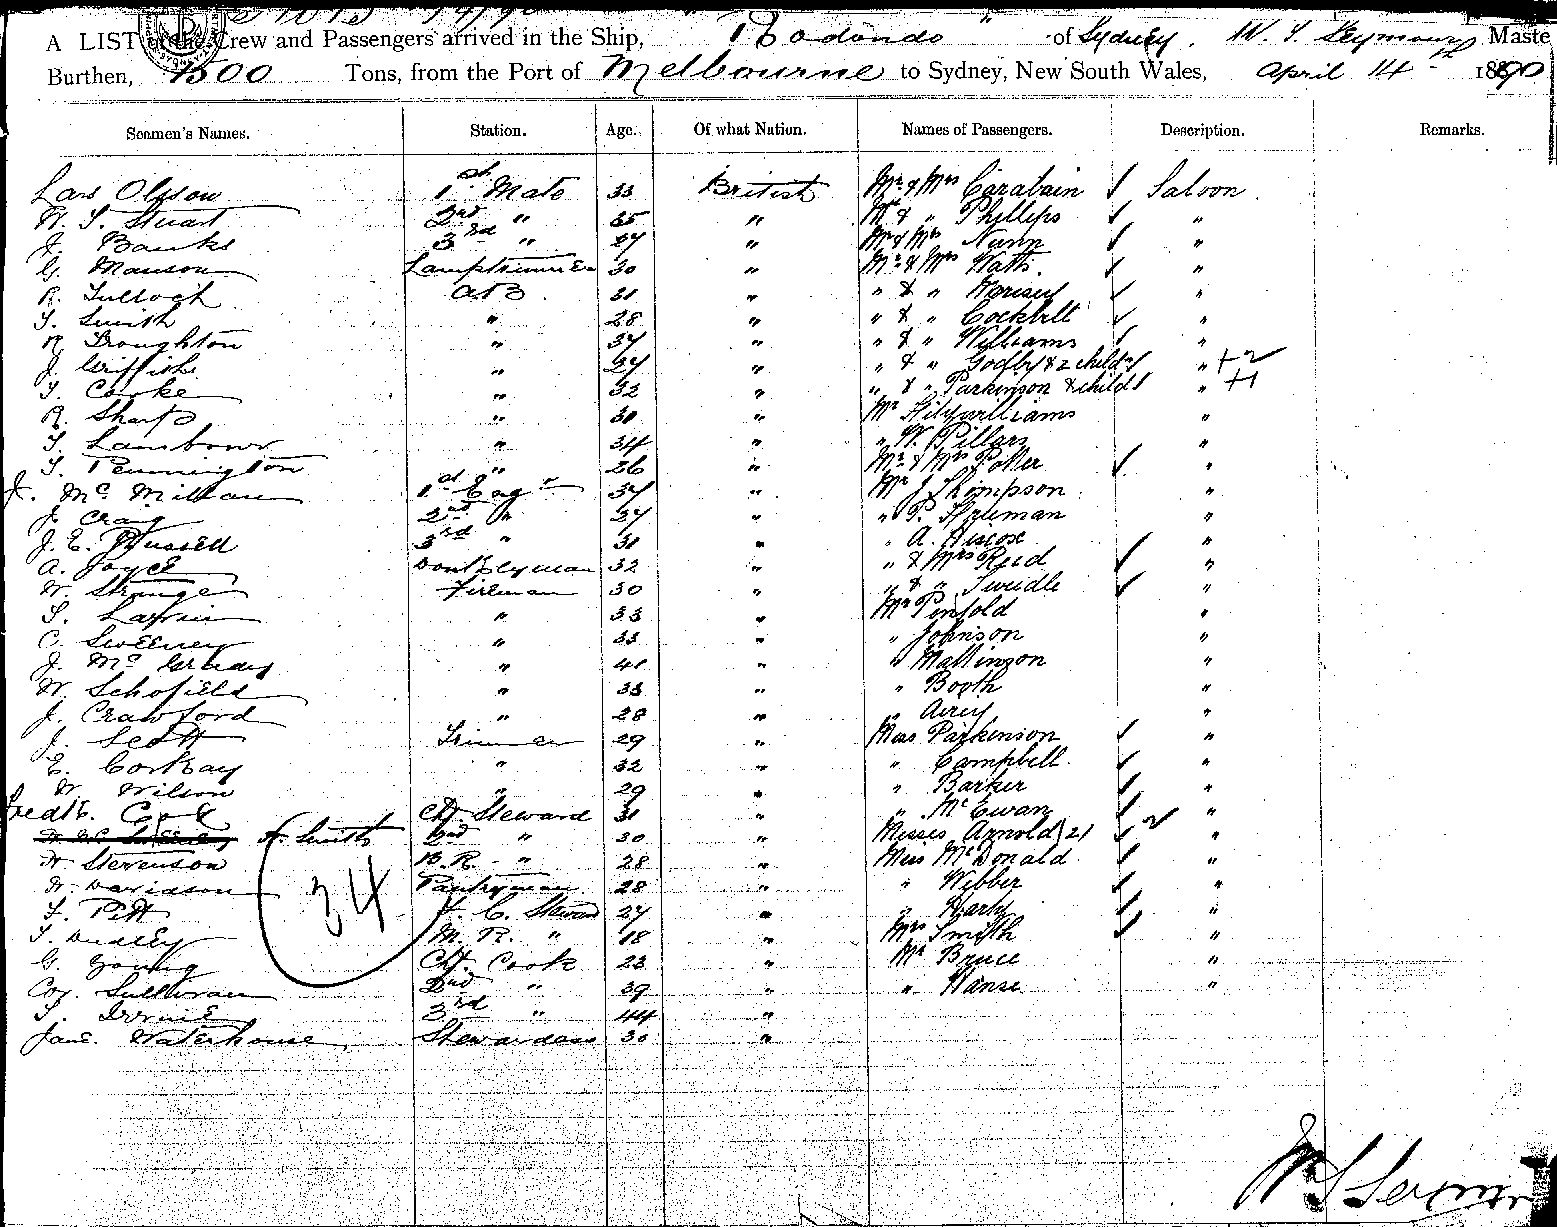 A LIST of the Crew and Passengers arrived in the Ship, Rodondo of Sydney. W. S. Seymour Maste
Burthen, 1500 Tons, from the Port of Melbourne to Sydney, New South Wales, April 14th 1890
Seamen's Names. Station. Age. Of what Nation. Names of Passengers. Description. Remarks.
Lars Olsson 1st Mate 33 British Mr & Mrs Carabain Saloon
W. S. Stuart 2nd " 35 " Mr & " Phillips "
J. Banks 3rd " 27 " Mr & Mrs Nunn "
G. Manson Lamptrimmer 30 " Mr & Mrs Watts "
R. Tulloch AB 31 " " & " "
T. Smith " 28 " " & " Cockbilt "
R. Troughton " 37 " " & " Williams "
J. Griffiths " 27 " " & " Godfby & 2 childn " +2
T. Cooke " 32 " " & " Parkinson & child " +1
R. Sharp " 31 " Mr Fitzwilliams "
T. " 34 " " W. Pillars "
T. Pennington " 26 " Mr & Mrs Potter "
J. McMillan 1st Engr 37 " Mr J Thompson "
J. Craig 2nd " 27 " " P. "
J. E. Russell 3rd " 31 " " A. Hiscox "
A. Joyce Donkeyman 32 " " & Mrs Reid "
W. Strange Fireman 30 " " & " Tweedle "
T. " 33 " Mr Penfold "
C. Sweeney " 33 " " Johnson "
J. McGrady " 41 " " Mallinson "
W. Schofield " 33 " " Booth "
J. Crawford " 28 " " Airey "
J. Scott Trimmer 29 " Miss Parkinson "
E. Corkay " 32 " " Campbell "
W. Wilson " 29 " " Barker "
Fredk. Cook Ch. Steward 31 " " McEwan "
A. Smith 2nd " 30 " Misses Arnold (2) 2 "
W. Stevenson B.R. " 28 " Miss McDonald "
W. Davidson Pantryman 28 " " Webber "
T. Pitt F. C. Steward 27 " " Harty "
T. Dudley M. R. " 18 " Mrs Smith "
G. Young Chf. Cook 23 " Mr Bruce "
Coy. Sullivan 2nd " 39 " " Hanse "
T. Irvine 3rd " 44 "
Jane Waterhouse Stewardess 30 "
34